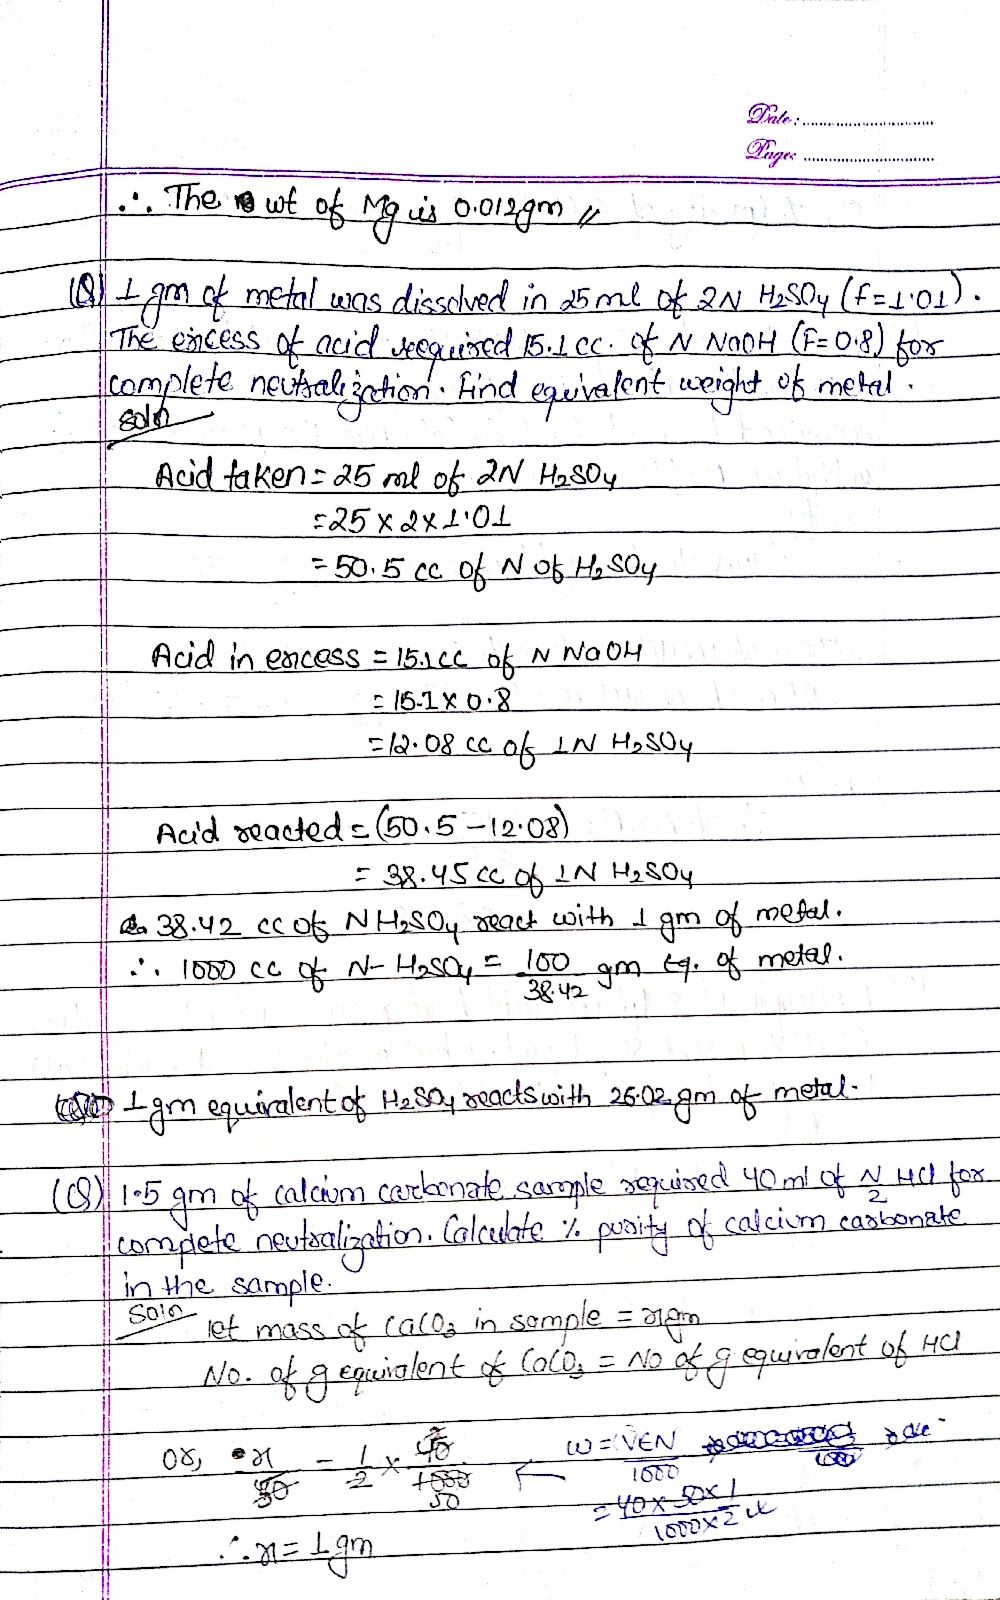 Date: ............
Page: ............
∴ The wt of Mg is 0.012gm //
(Q) 1 gm of metal was dissolved in 25 ml of 2N H₂SO₄ (f=1.01).
The excess of acid required 15.1 cc. of N NaOH (f=0.8) for
complete neutralization. Find equivalent weight of metal.
Soln
Acid taken = 25 ml of 2N H₂SO₄
= 25 × 2 × 1.01
= 50.5 cc of N of H₂SO₄
Acid in excess = 15.1cc of N NaOH
= 15.1 × 0.8
= 12.08 cc of 1N H₂SO₄
Acid reacted = (50.5 - 12.08)
= 38.45 cc of 1N H₂SO₄
38.42 cc of N H₂SO₄ react with 1 gm of metal.
∴ 1000 cc of N- H₂SO₄ = 100/38.42 gm Eq. of metal.
1 gm equivalent of H₂SO₄ reacts with 26.02 gm of metal.
(Q) 1.5 gm of calcium carbonate sample required 40 ml of N/2 HCl for
complete neutralization. Calculate % purity of calcium carbonate
in the sample.
Soln
let mass of CaCO₃ in sample = x gm
No. of g equivalent of CaCO₃ = No of g equivalent of HCl
or, x/50 = 1/2 × 40/1000 w = VEN/1000
50
= 40 × 50 × 1/1000 × 2
∴ x = 1 gm